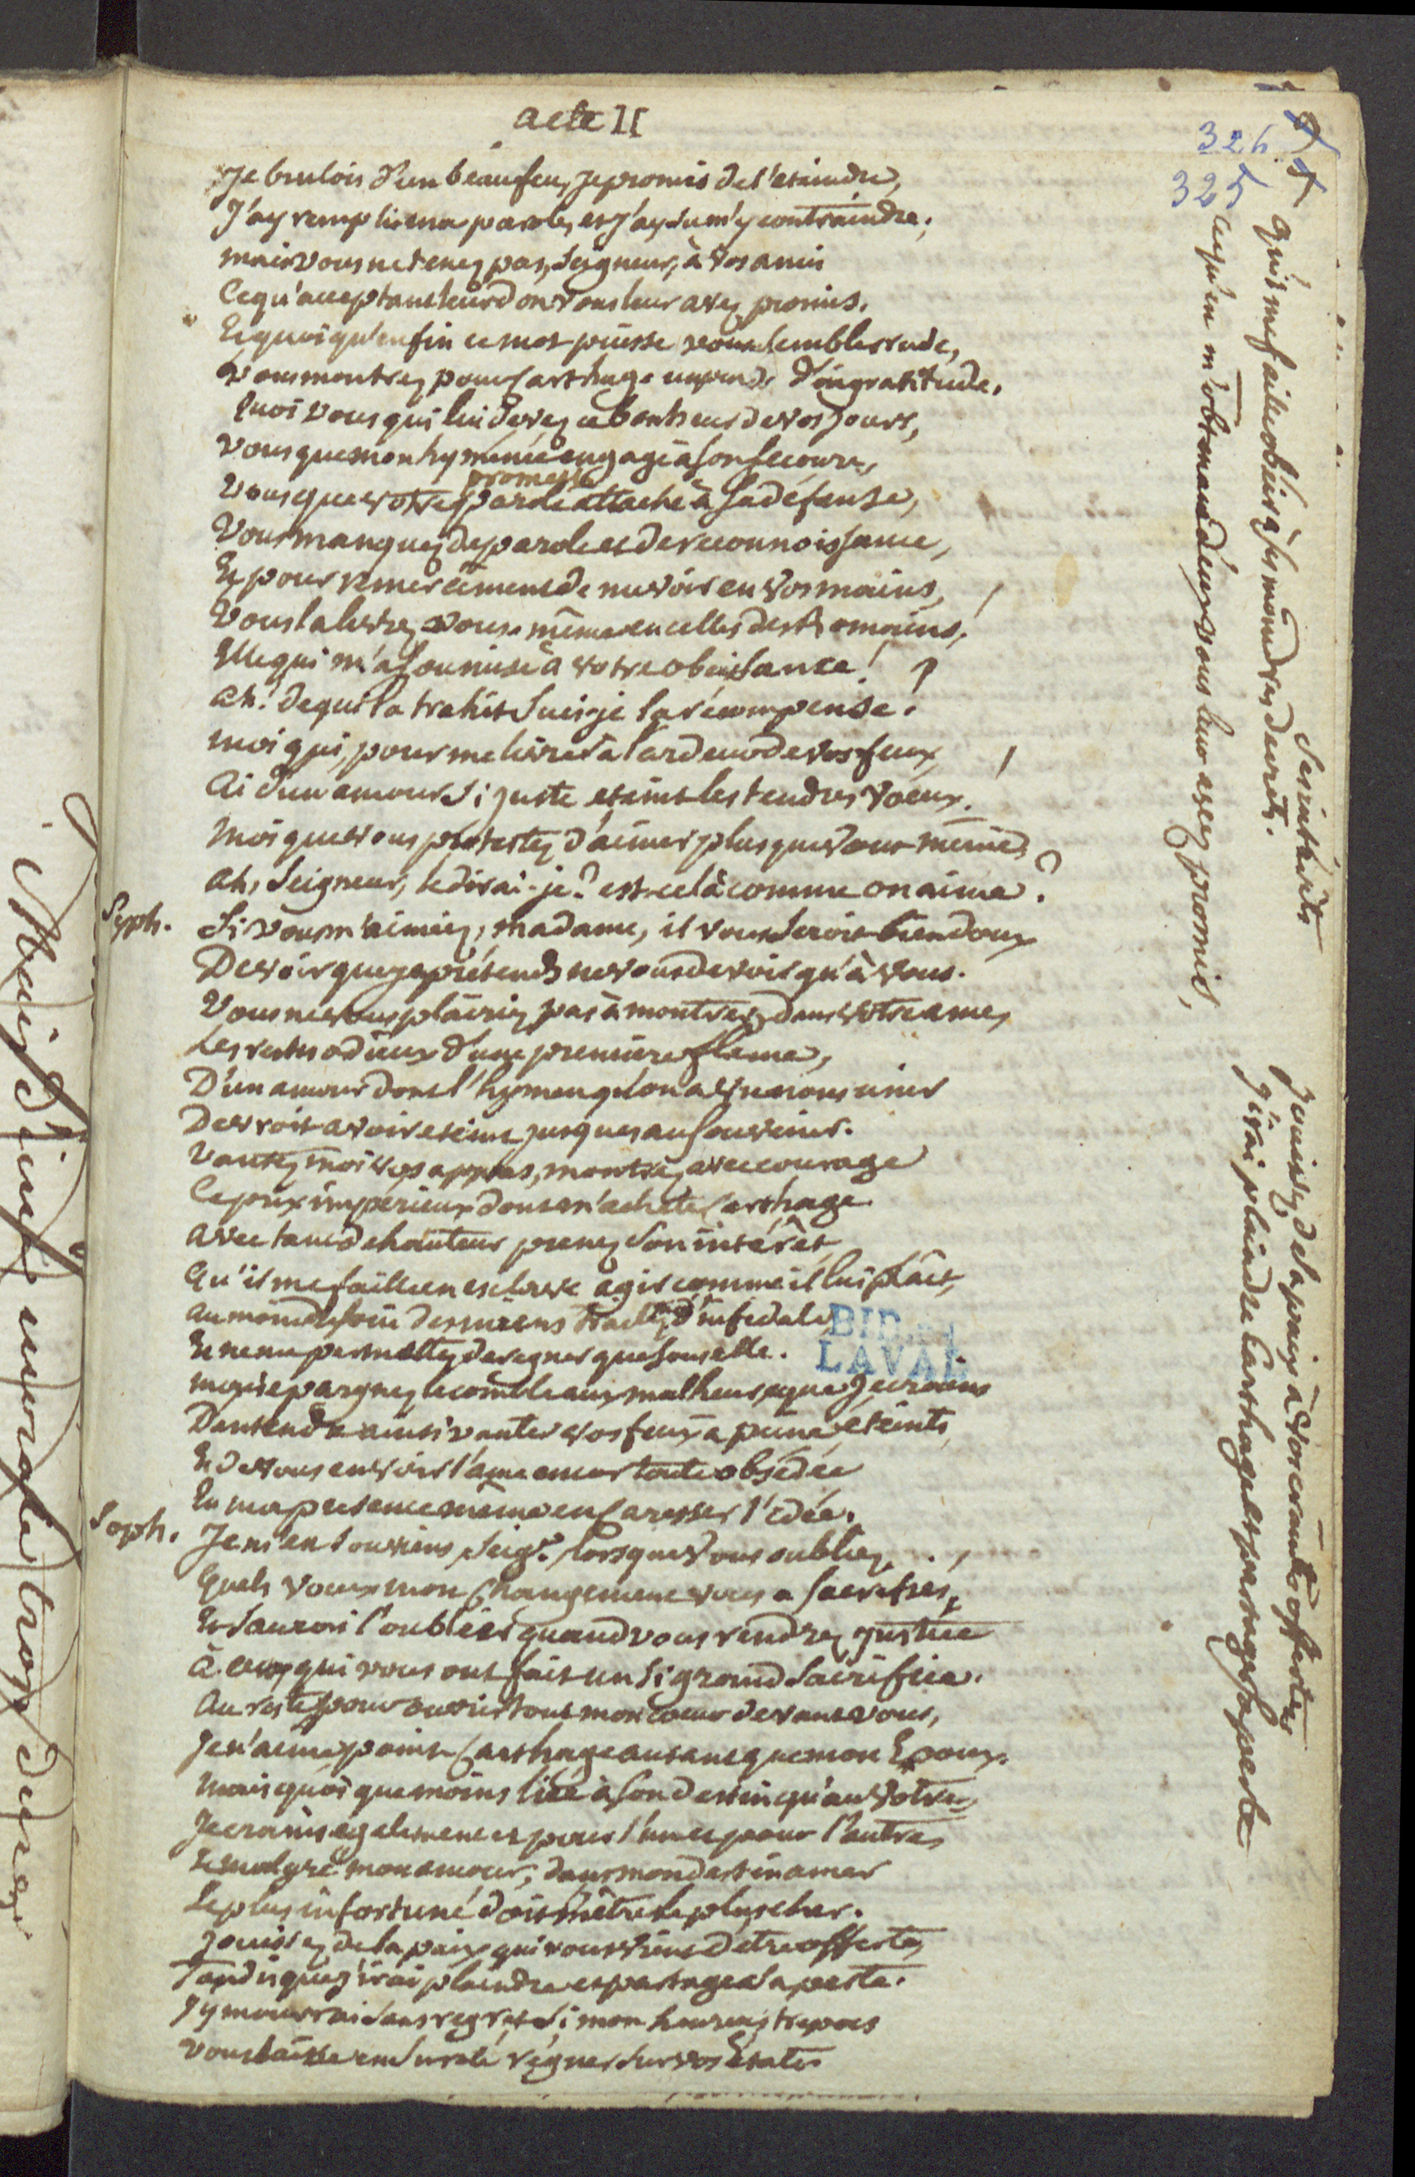 acte II
326.
325
Je brulois d'un beau feu, je promis de l'etaindre,
J'ay rempli ma parole, et j'ay su m'y contraindre;
mais vous ne tenez pas, seigneur, à vos amis
Ce qu'acceptant leur don vous leur avez promis.
Et quoi qu'enfin ce mot puisse vous sembler rude,
Vous montrez pour Carthage un peu d'ingratitude.
Quoi vous qui lui devez ce bonheur de vos jours,
Vous que mon hyménée engage à son secours,
promesse
Vous que votre parole attache à sa défense,
Vous manquez de parole et de reconnoissance,
Et pour remerciment de me voir en vos mains,
Vous la livrez vous-même en celles des Romains!
Elle qui m'a soumise à votre obeissance!
ah! de qui la trahit suis-je la récompense!
moi qui, pour me livrer à l'ardeur de vos feux,
Ai d'un amour si juste etaint les tendres voeux.
Moi que vous protestez d'aimer plus que vous-même,
ah, seigneur, le dirai-je? est-ce là comme on aime?
Syph. Si vous m'aimiez, madame, il vous seroit bien doux
De voir que je prétends ne vous devoir qu'à vous.
Vous ne vous plairiez pas à montrer dans votre ame
Les restes odieux d'une premiere flame,
D'un amour dont l'hymen qu'on a vu nous unir
Devroit avoir eteint jusques au souvenir.
Vantez moi vos appas, montrez avec courage
Ce prix imperieux dont m'achete Carthage
avec tant de hauteur prenez son intérêt,
Qu'il me faille en esclave agir comme il lui plait,
au moindre soin des miens traitez d'infidele
Et ne me permettez de regner que sous elle.
mais epargnez le comble aux malheurs que je crains
D'entendre ainsi vanter vos feux à peine éteints,
Et de vous en voir l'ame encor toute obsédée
En ma presence même en caresser l'idée.
Soph. Je m'en souviens, seigr. lorsque vous oubliez
Quels voeux mon changement vous a sacrifiés,
Et saurai l'oublier quand vous rendrez justice
à ceux qui vous ont fait un si grand sacrifice.
Au reste pour ouvrir tout mon coeur devant vous,
Je n'aime point Carthage autant que mon Epoux.
Mais quoi que moins liée à son destin qu'au votre,
Je crains egalement et pour l'un et pour l'autre,
Et malgré mon amour, dans mon destin amer
Le plus infortuné doit m'être le plus cher.
Jouissez de la paix qui vous vient d'etre offerte,
Tandis que j'irai plaindre et partager sa perte.
J'y mourrai sans regret si mon heureux trepas
Vous laisse en sureté régner sur vos Etats
BIB. DE
LAVAL
ses intérêts
Qu'il me faille obéir à ses moindres decrets.
ce qu'en m'obtenant d'eux vous leur avez promis,
Jouissez de la paix à vos voeux offerte
J'irai plaindre Carthage et partager sa perte